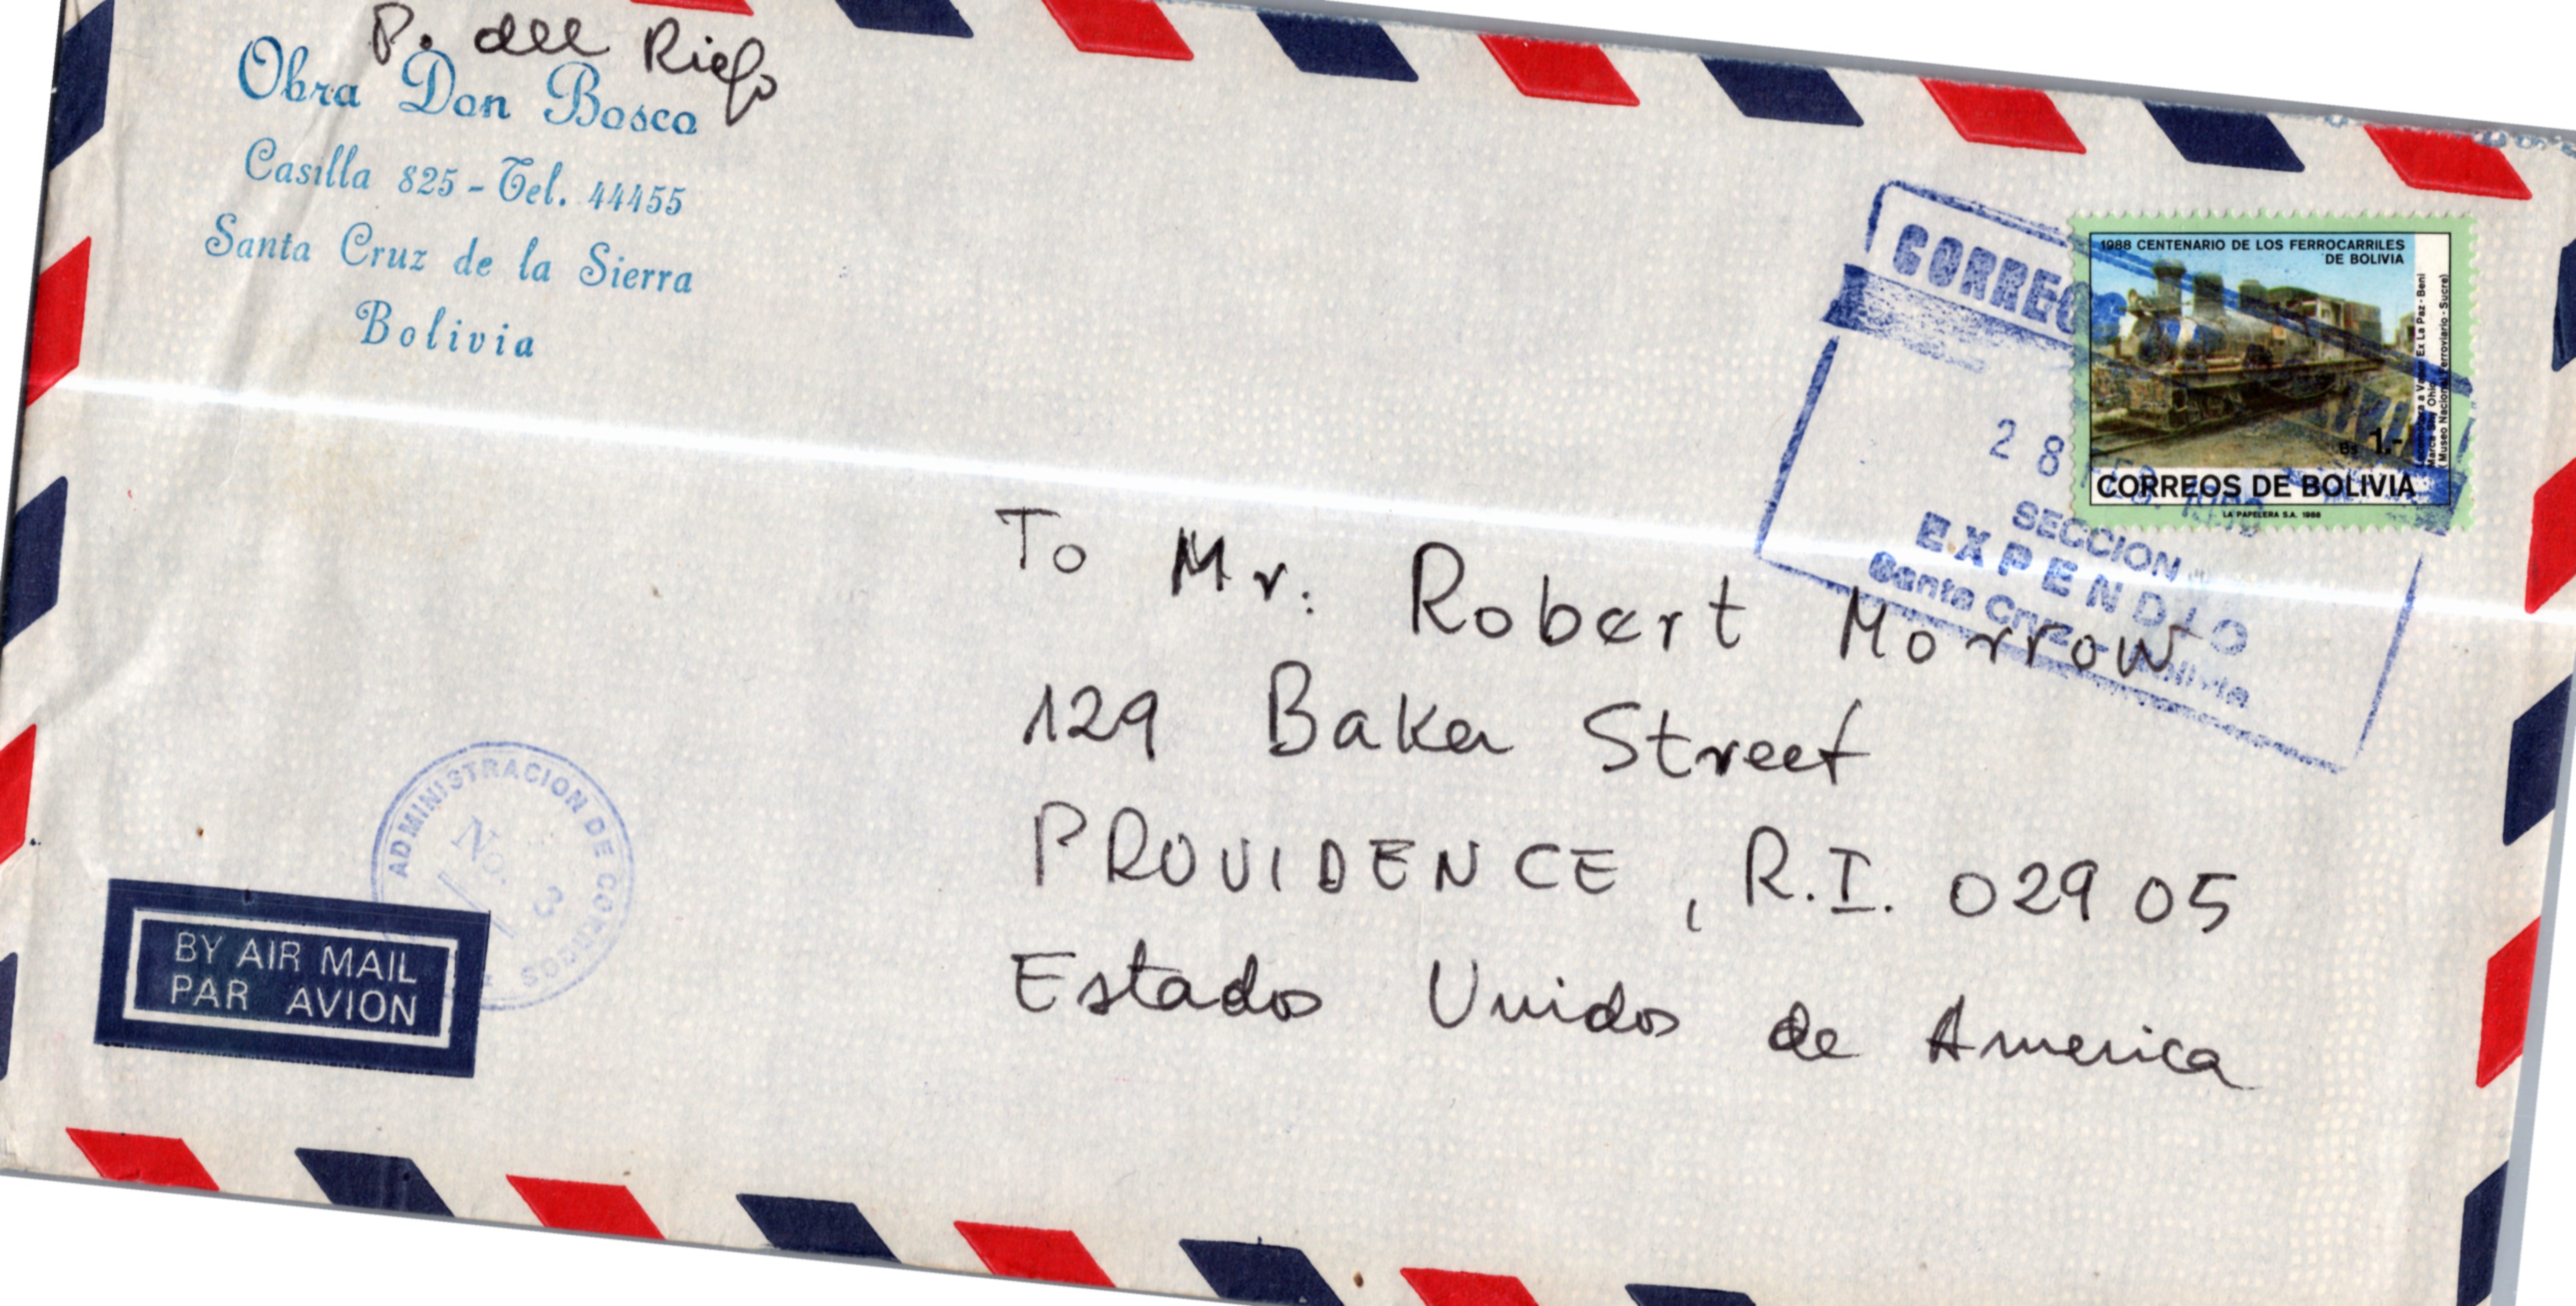 P. del Riego
Obra Don Bosco
Casilla 825 - Tel. 44455
Santa Cruz de la Sierra
Bolivia
CORREO
28
SECCION
EXPENDIO
Santa Cruz - Bolivia
1988 CENTENARIO DE LOS FERROCARRILES
DE BOLIVIA
Locomotora a Vapor Ex La Paz - Beni
Marca Shay Ohio
(Museo Nacional Ferroviario - Sucre)
Bs. 1.-
CORREOS DE BOLIVIA
LA PAPELERA S.A. 1988
To Mr. Robert Morrow
129 Baker Street
PROVIDENCE, R.I. 02905
Estados Unidos de America
ADMINISTRACION DE CORREOS
No. 3
BY AIR MAIL
PAR AVION